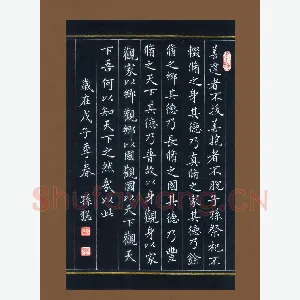 善建者不拔善抱者不脱子孫祭祀不
輟脩之身其德乃真脩之家其德乃餘
脩之鄉其德乃長脩之國其德乃豐
脩之天下其德乃普故以身觀身以家
觀家以鄉觀鄉以國觀國以天下觀天
下吾何以知天下之然哉以此
歲在戊子季春
孫
Shufawang.CN